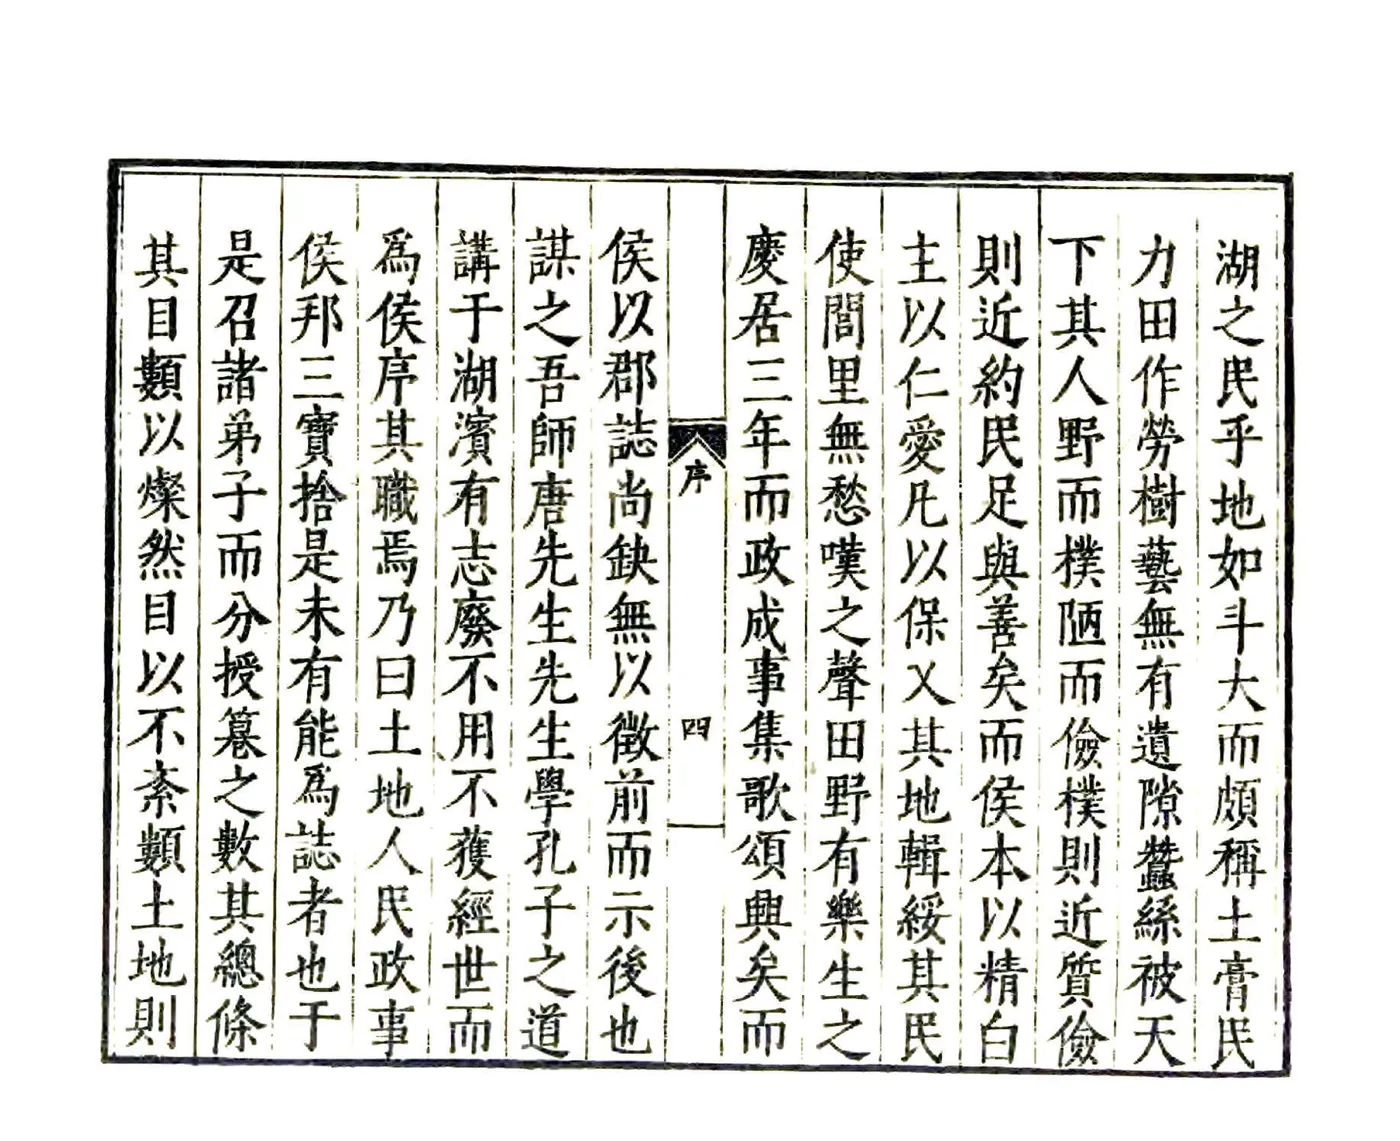 湖之民乎地如斗大而頗稱土膏民
力田作勞樹藝無有遺隙蠶絲被天
下其人野而樸陋而儉樸則近質儉
則近約民足與善矣而侯本以精白
主以仁愛凡以保乂其地輯綏其民
使閭里無愁嘆之聲田野有樂生之
慶居三年而政成事集歌頌興矣而
序 四
侯以郡誌尚缺無以徵前而示後也
謀之吾師唐先生先生學孔子之道
講于湖濱有志廢不用不獲經世而
爲侯序其職焉乃曰土地人民政事
侯邦三寶捨是未有能爲誌者也于
是召諸弟子而分授纂之數其總條
其目類以燦然目以不紊類土地則